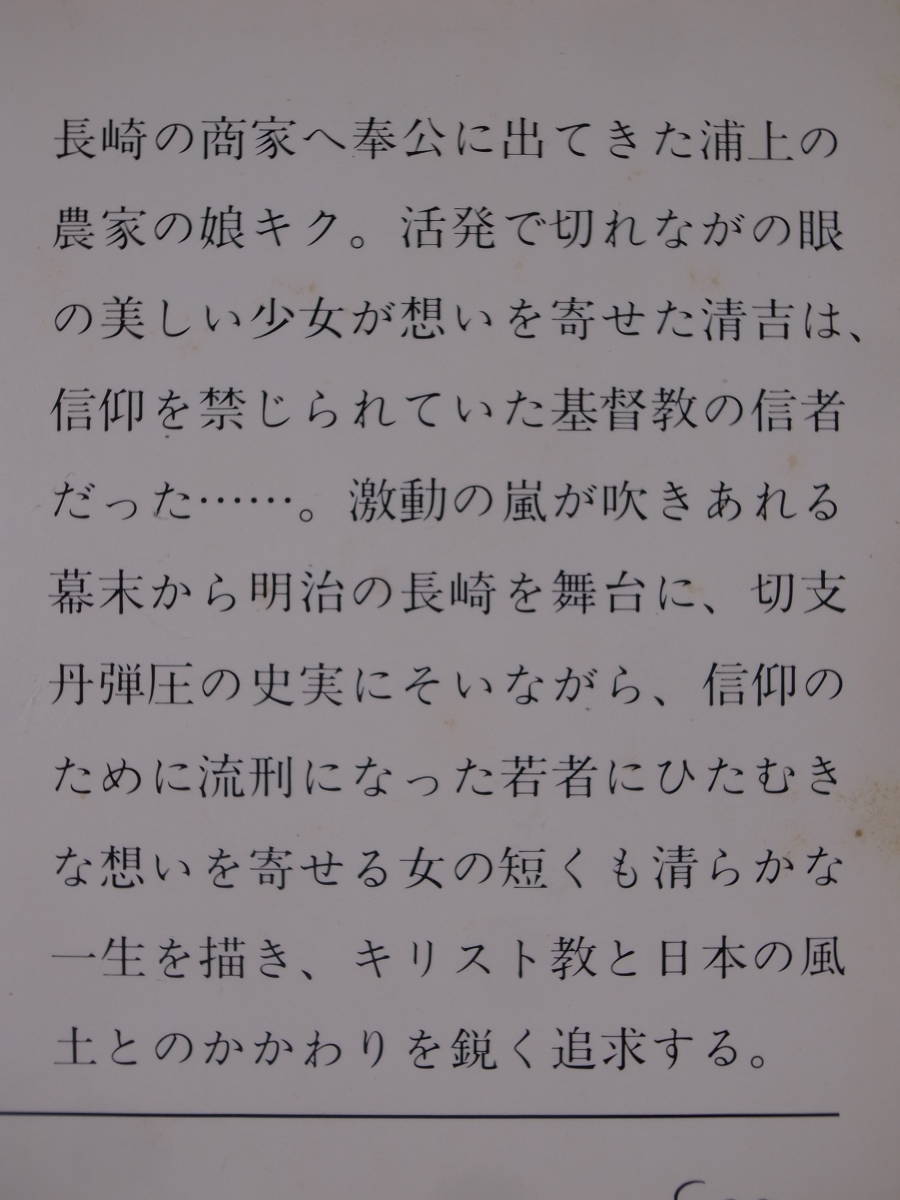 長崎の商家へ奉公に出てきた浦上の
農家の娘キク。活発で切れながの眼
の美しい少女が想いを寄せた清吉は、
信仰を禁じられていた基督教の信者
だった……。激動の嵐が吹きあれる
幕末から明治の長崎を舞台に、切支
丹弾圧の史実にそいながら、信仰の
ために流刑になった若者にひたむき
な想いを寄せる女の短くも清らかな
一生を描き、キリスト教と日本の風
土とのかかわりを鋭く追求する。